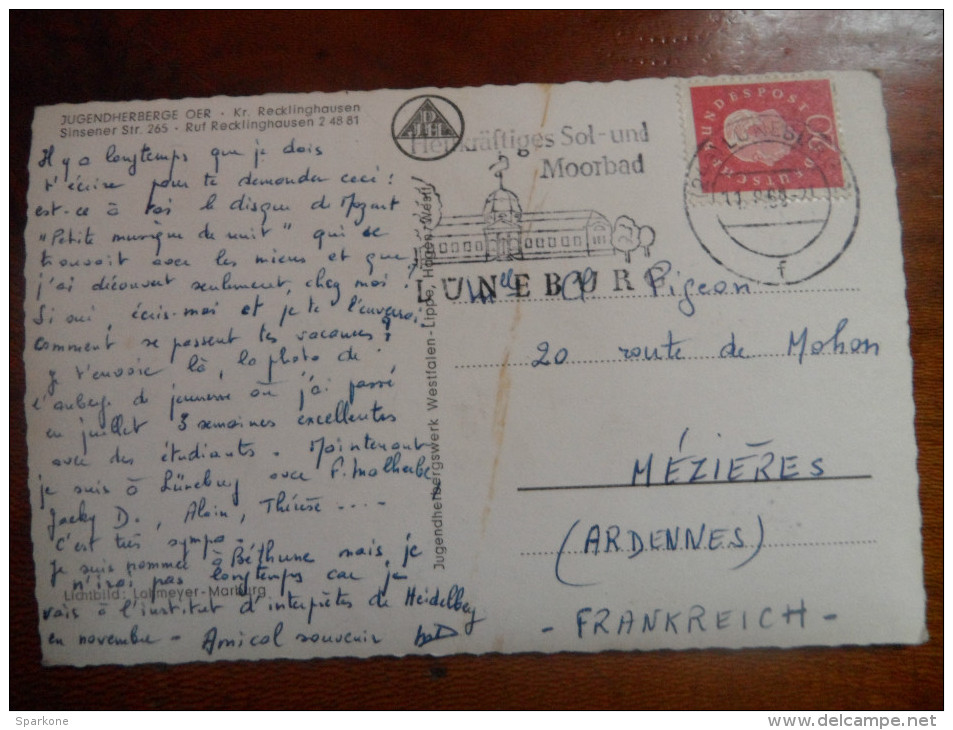 JUGENDHERBERGE OER · Kr. Recklinghausen
Sinsener Str. 265 · Ruf Recklinghausen 2 48 81
Il y a longtemps que je dois
t'écrire pour te demander ceci :
est-ce à toi le disque de Mozart
"Petite musique de nuit" qui se
trouvait avec les miens et que
j'ai découvert seulement, chez moi ?
Si oui, écris-moi et je te l'enverrai,
comment se passent tes vacances ?
Je t'envoie là, la photo de
l'auberge de jeunesse où j'ai passé
en juillet 3 semaines excellentes
avec des étudiants. Maintenant
je suis à Lüneburg avec F. Malherbe
Jacky D., Alain, Thérèse ....
C'est très sympa.
Je suis nommée à Béthune mais je
n'irai pas longtemps car je
Lichtbild: Lohmeyer-Marburg
vais à l'institut d'interprètes de Heidelberg
en novembre - Amical souvenir
Jugendherbergswerk Westfalen-Lippe, Hagen/Westf.
DJH
Heilkräftiges Sol- und
Moorbad
LÜNEBURG
DEUTSCHE BUNDESPOST
20
LÜNEBURG
f
Mlle Pigeon
20 route de Mohon
MÉZIÈRES
(ARDENNES)
- FRANKREICH -
Sparkone
http://www.delcampe.net